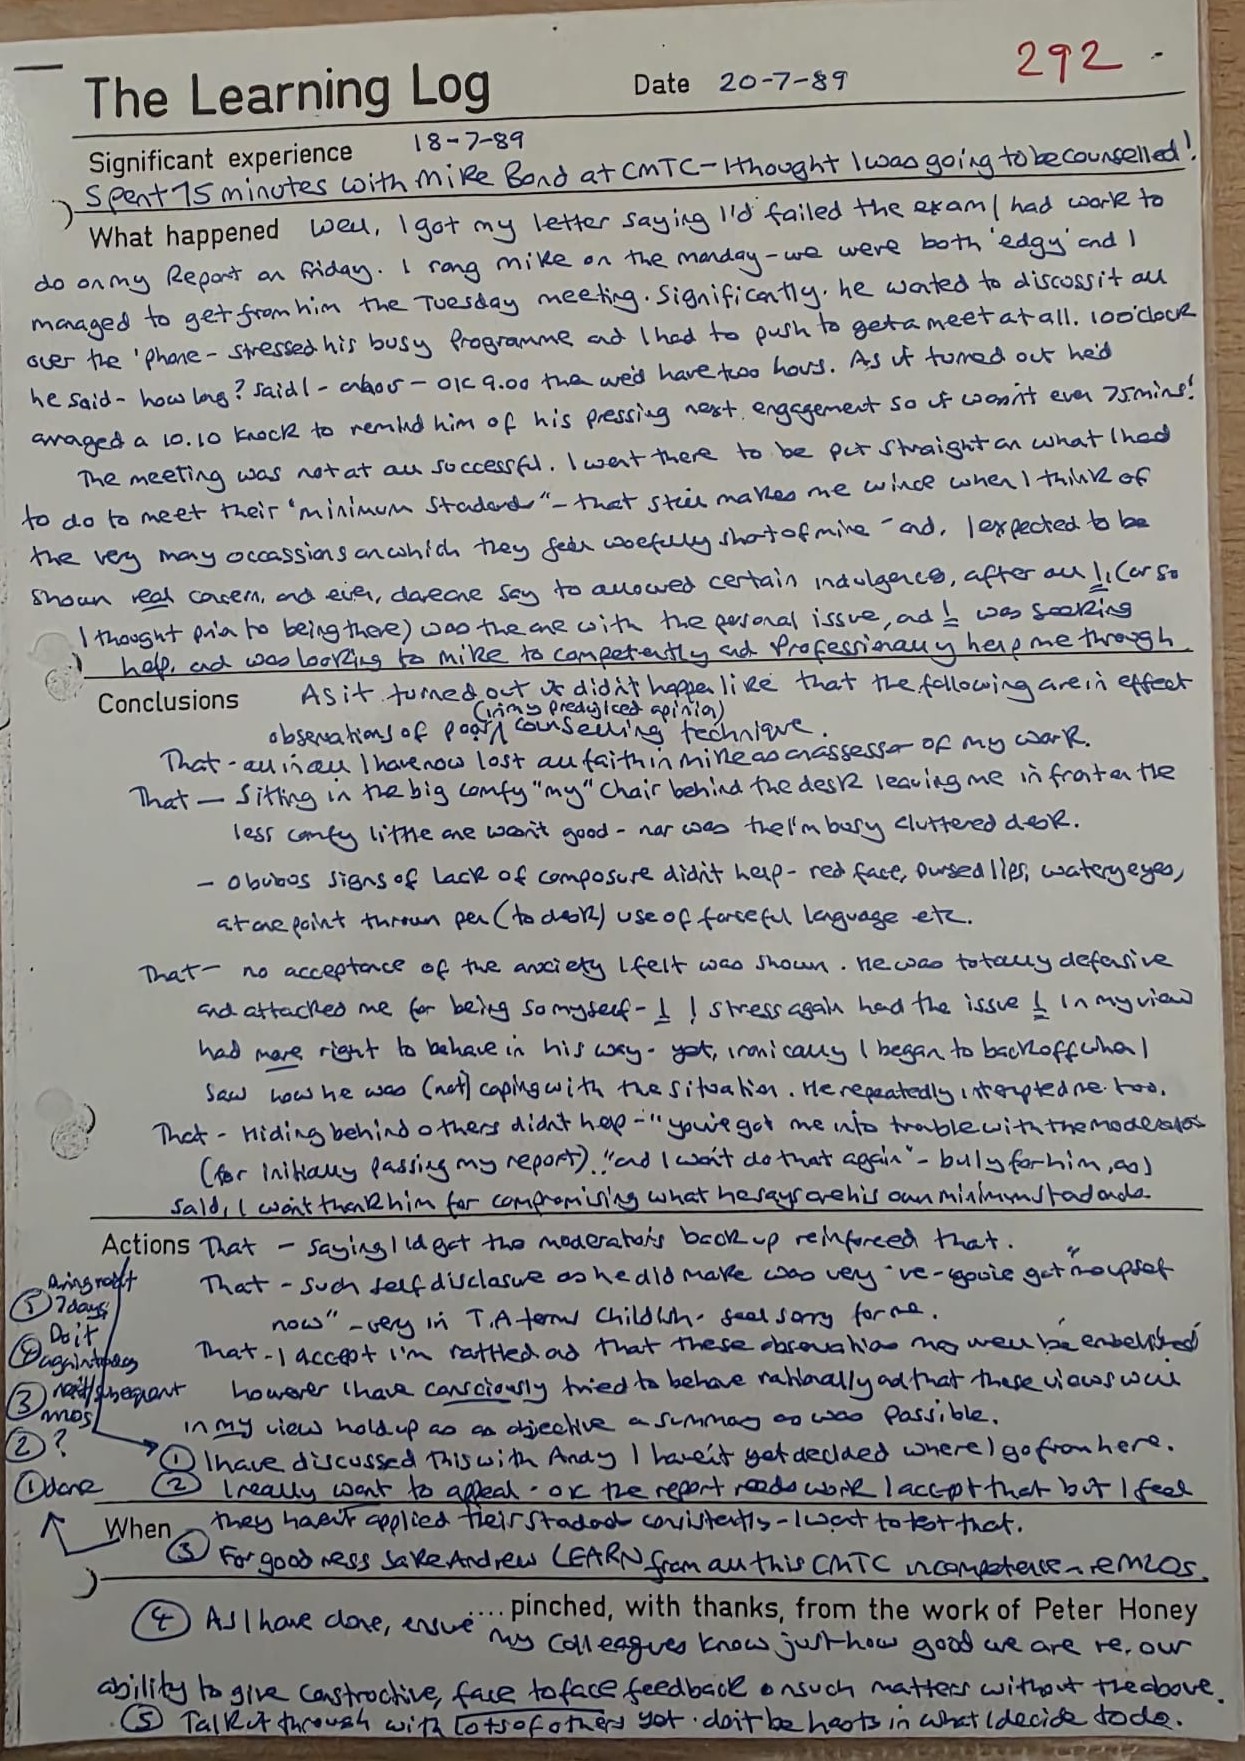 292
The Learning Log Date 20-7-89
Significant experience 18-7-89
Spent 75 minutes with Mike Bond at CMTC - I thought I was going to be counselled!
What happened Well, I got my letter saying I'd failed the exam / had work to
do on my Report on Friday. I rang Mike on the Monday - we were both 'edgy' and I
managed to get from him the Tuesday meeting. Significantly. he wanted to discuss it all
over the 'phone - stressed his busy Programme and I had to push to get a meet at all. 10 o'clock
he said - how long? said I - an hour - OK 9.00 then we'd have two hours. As it turned out he'd
arranged a 10.10 knock to remind him of his pressing next engagement so it wasn't even 75 mins!
The meeting was not at all successful. I went there to be put straight on what I had
to do to meet their "minimum standards" - that still makes me wince when I think of
the very many occassions on which they fell woefully short of mine - and, I expected to be
shown real concern, and even, dare one say to allowed certain indulgences, after all I, (or so
I thought prior to being there) was the one with the personal issue, and I was seeking
help, and was looking to Mike to competently and Professionally help me through
Conclusions As it turned out it didn't happen like that the following are in effect
(in my predjiced opinion)
observations of poor counselling technique.
That - all in all I have now lost all faith in Mike as an assessor of my work.
That - Sitting in the big comfy "my" chair behind the desk leaving me in front on the
less comfy little one wasn't good - nor was the I'm busy cluttered desk.
- Obvious signs of lack of composure didn't help - red face, pursed lips, watery eyes,
at one point thrown pen (to desk) use of forceful language etc.
That - no acceptance of the anxiety I felt was shown. He was totally defensive
and attacked me for being so myself - I ! stress again had the issue I in my view
had more right to behave in his way - yet, ironically I began to back off when I
saw how he was (not) coping with the situation. He repeatedly interrupted me too.
That - Hiding behind others didn't help - "you've got me into trouble with the moderator
(for initially passing my report) "and I won't do that again" - bully for him, as I
said, I won't thank him for compromising what he says are his own minimum standards.
Actions That - saying I'd get the moderators back up reinforced that.
That - such self disclosure as he did make was very -ve - "you've got me upset
now" - very in T.A terms childish - feel sorry for me.
That - I accept I'm rattled and that these observations may well be 'embelished'
however I have consciously tried to behave rationally and that these views will
in my view hold up as as objective a summary as was possible.
① I have discussed this with Andy I haven't yet decided where I go from here.
② I really want to appeal - OK the report needs work I accept that but I feel
they haven't applied their standards consistently - I want to test that.
⑤ 7 days
④ Do it
again today
③ next/subsequent
mos
② ?
① done
When
③ For goodness sake Andrew LEARN from all this CMTC incompetence
... pinched, with thanks, from the work of Peter Honey
④ As I have done, ensure my colleagues know just how good we are re. our
ability to give constructive, face to face feedback on such matters without the above.
⑤ Talk it through with lots of others yet - don't be hasty in what I decide to do.